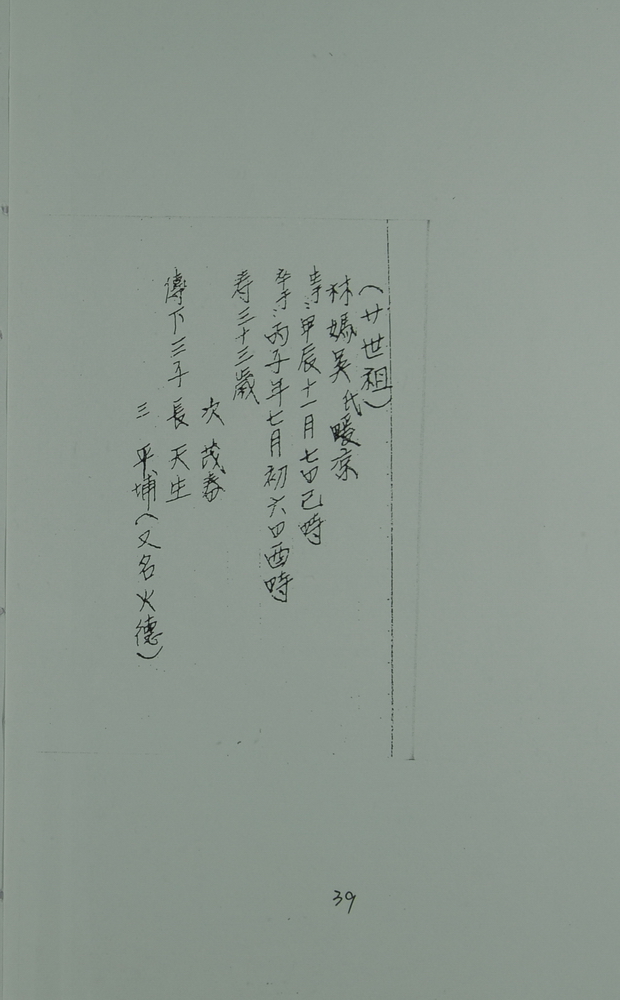 (廿世祖)
林媽吳氏暖涼
生于:甲辰十一月七日巳時
卒于:丙子年七月初六日酉時
寿三十三歲
次 茂春
傳下三子 長 天生
三 平埔(又名火德)
39